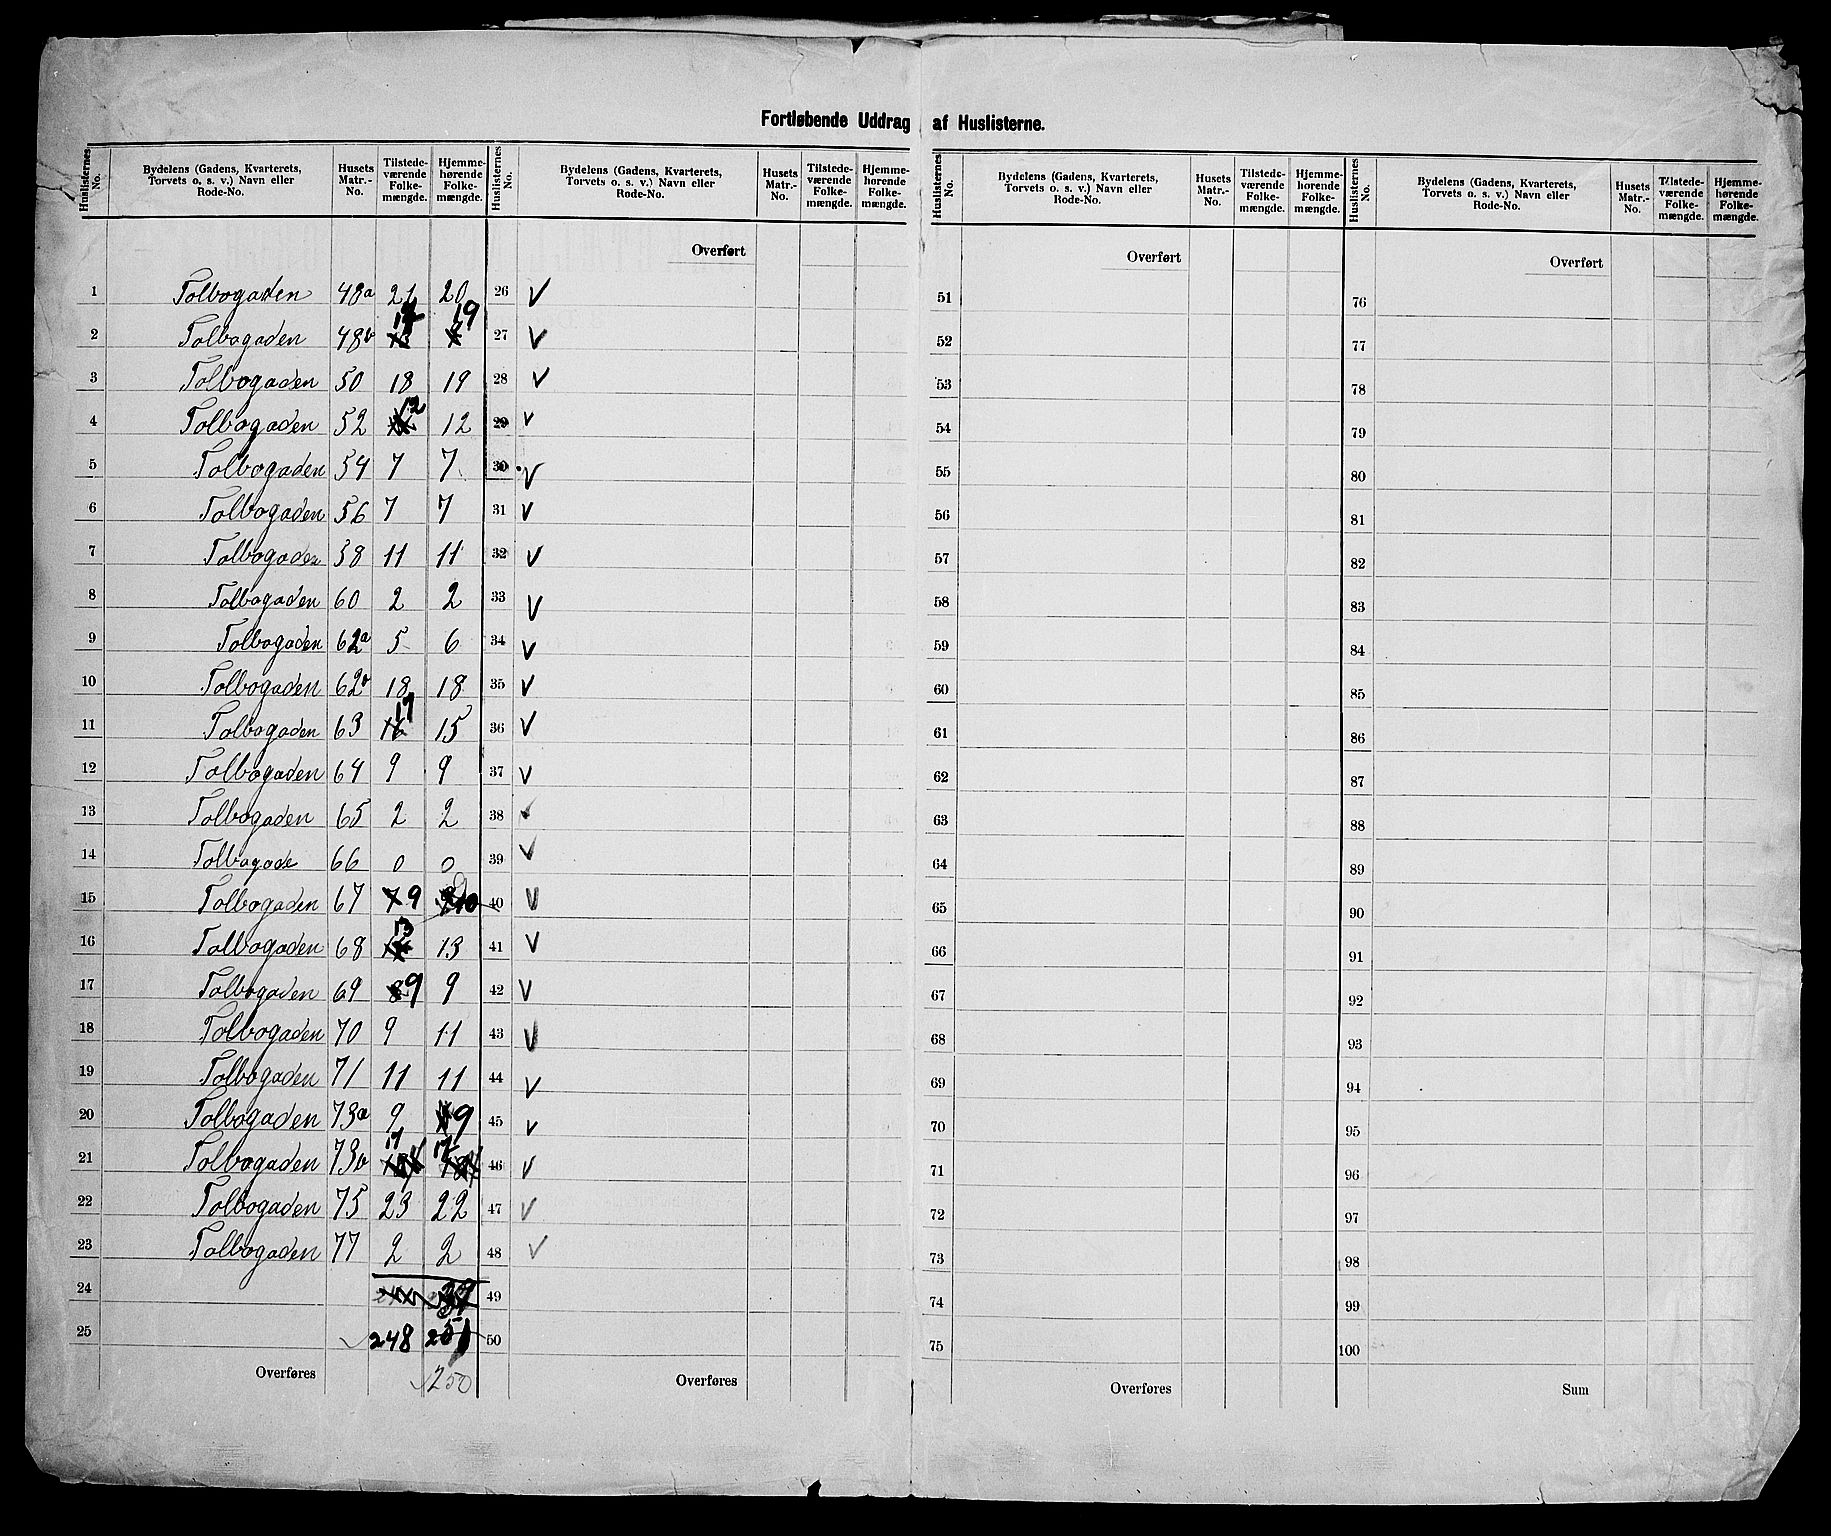 Fortløbende Uddrag af Huslisterne.
Huslisternes No. Bydelens (Gadens, Kvarterets, Torvets o. s. v.) Navn eller Rode-No. Husets Matr.-No. Tilstedeværende Folkemængde. Hjemmehørende Folkemængde.
Huslisternes No. Bydelens (Gadens, Kvarterets, Torvets o. s. v.) Navn eller Rode-No. Husets Matr.-No. Tilstedeværende Folkemængde. Hjemmehørende Folkemængde.
Huslisternes No. Bydelens (Gadens, Kvarterets, Torvets o. s. v.) Navn eller Rode-No. Husets Matr.-No. Tilstedeværende Folkemængde. Hjemmehørende Folkemængde.
Huslisternes No. Bydelens (Gadens, Kvarterets, Torvets o. s. v.) Navn eller Rode-No. Husets Matr.-No. Tilstedeværende Folkemængde. Hjemmehørende Folkemængde.
Overført Overført Overført
1 Tolbogaden 48a 21 20 26 V 51 76
2 Tolbogaden 48b 19 27 V 52 77
3 Tolbogaden 50 18 19 28 V 53 78
4 Tolbogaden 52 12 12 29 V 54 79
5 Tolbogaden 54 7 7 30 V 55 80
6 Tolbogaden 56 7 7 31 V 56 81
7 Tolbogaden 58 11 11 32 V 57 82
8 Tolbogaden 60 2 2 33 V 58 83
9 Tolbogaden 62a 5 6 34 V 59 84
10 Tolbogaden 62b 18 18 35 V 60 85
11 Tolbogaden 63 16 15 36 V 61 86
12 Tolbogaden 64 9 9 37 V 62 87
13 Tolbogaden 65 2 2 38 V 63 88
14 Tolbogade 66 0 0 39 V 64 89
15 Tolbogaden 67 7 9 10 40 V 65 90
16 Tolbogaden 68 13 13 41 V 66 91
17 Tolbogaden 69 8 9 9 42 V 67 92
18 Tolbogaden 70 9 11 43 V 68 93
19 Tolbogaden 71 11 11 44 V 69 94
20 Tolbogaden 73a 9 9 45 V 70 95
21 Tolbogaden 73b 17 17 46 V 71 96
22 Tolbogaden 75 23 22 47 V 72 97
23 Tolbogaden 77 2 2 48 V 73 98
24 49 74 99
25 248 251 50 75 100
Overføres 250 Overføres Overføres Sum